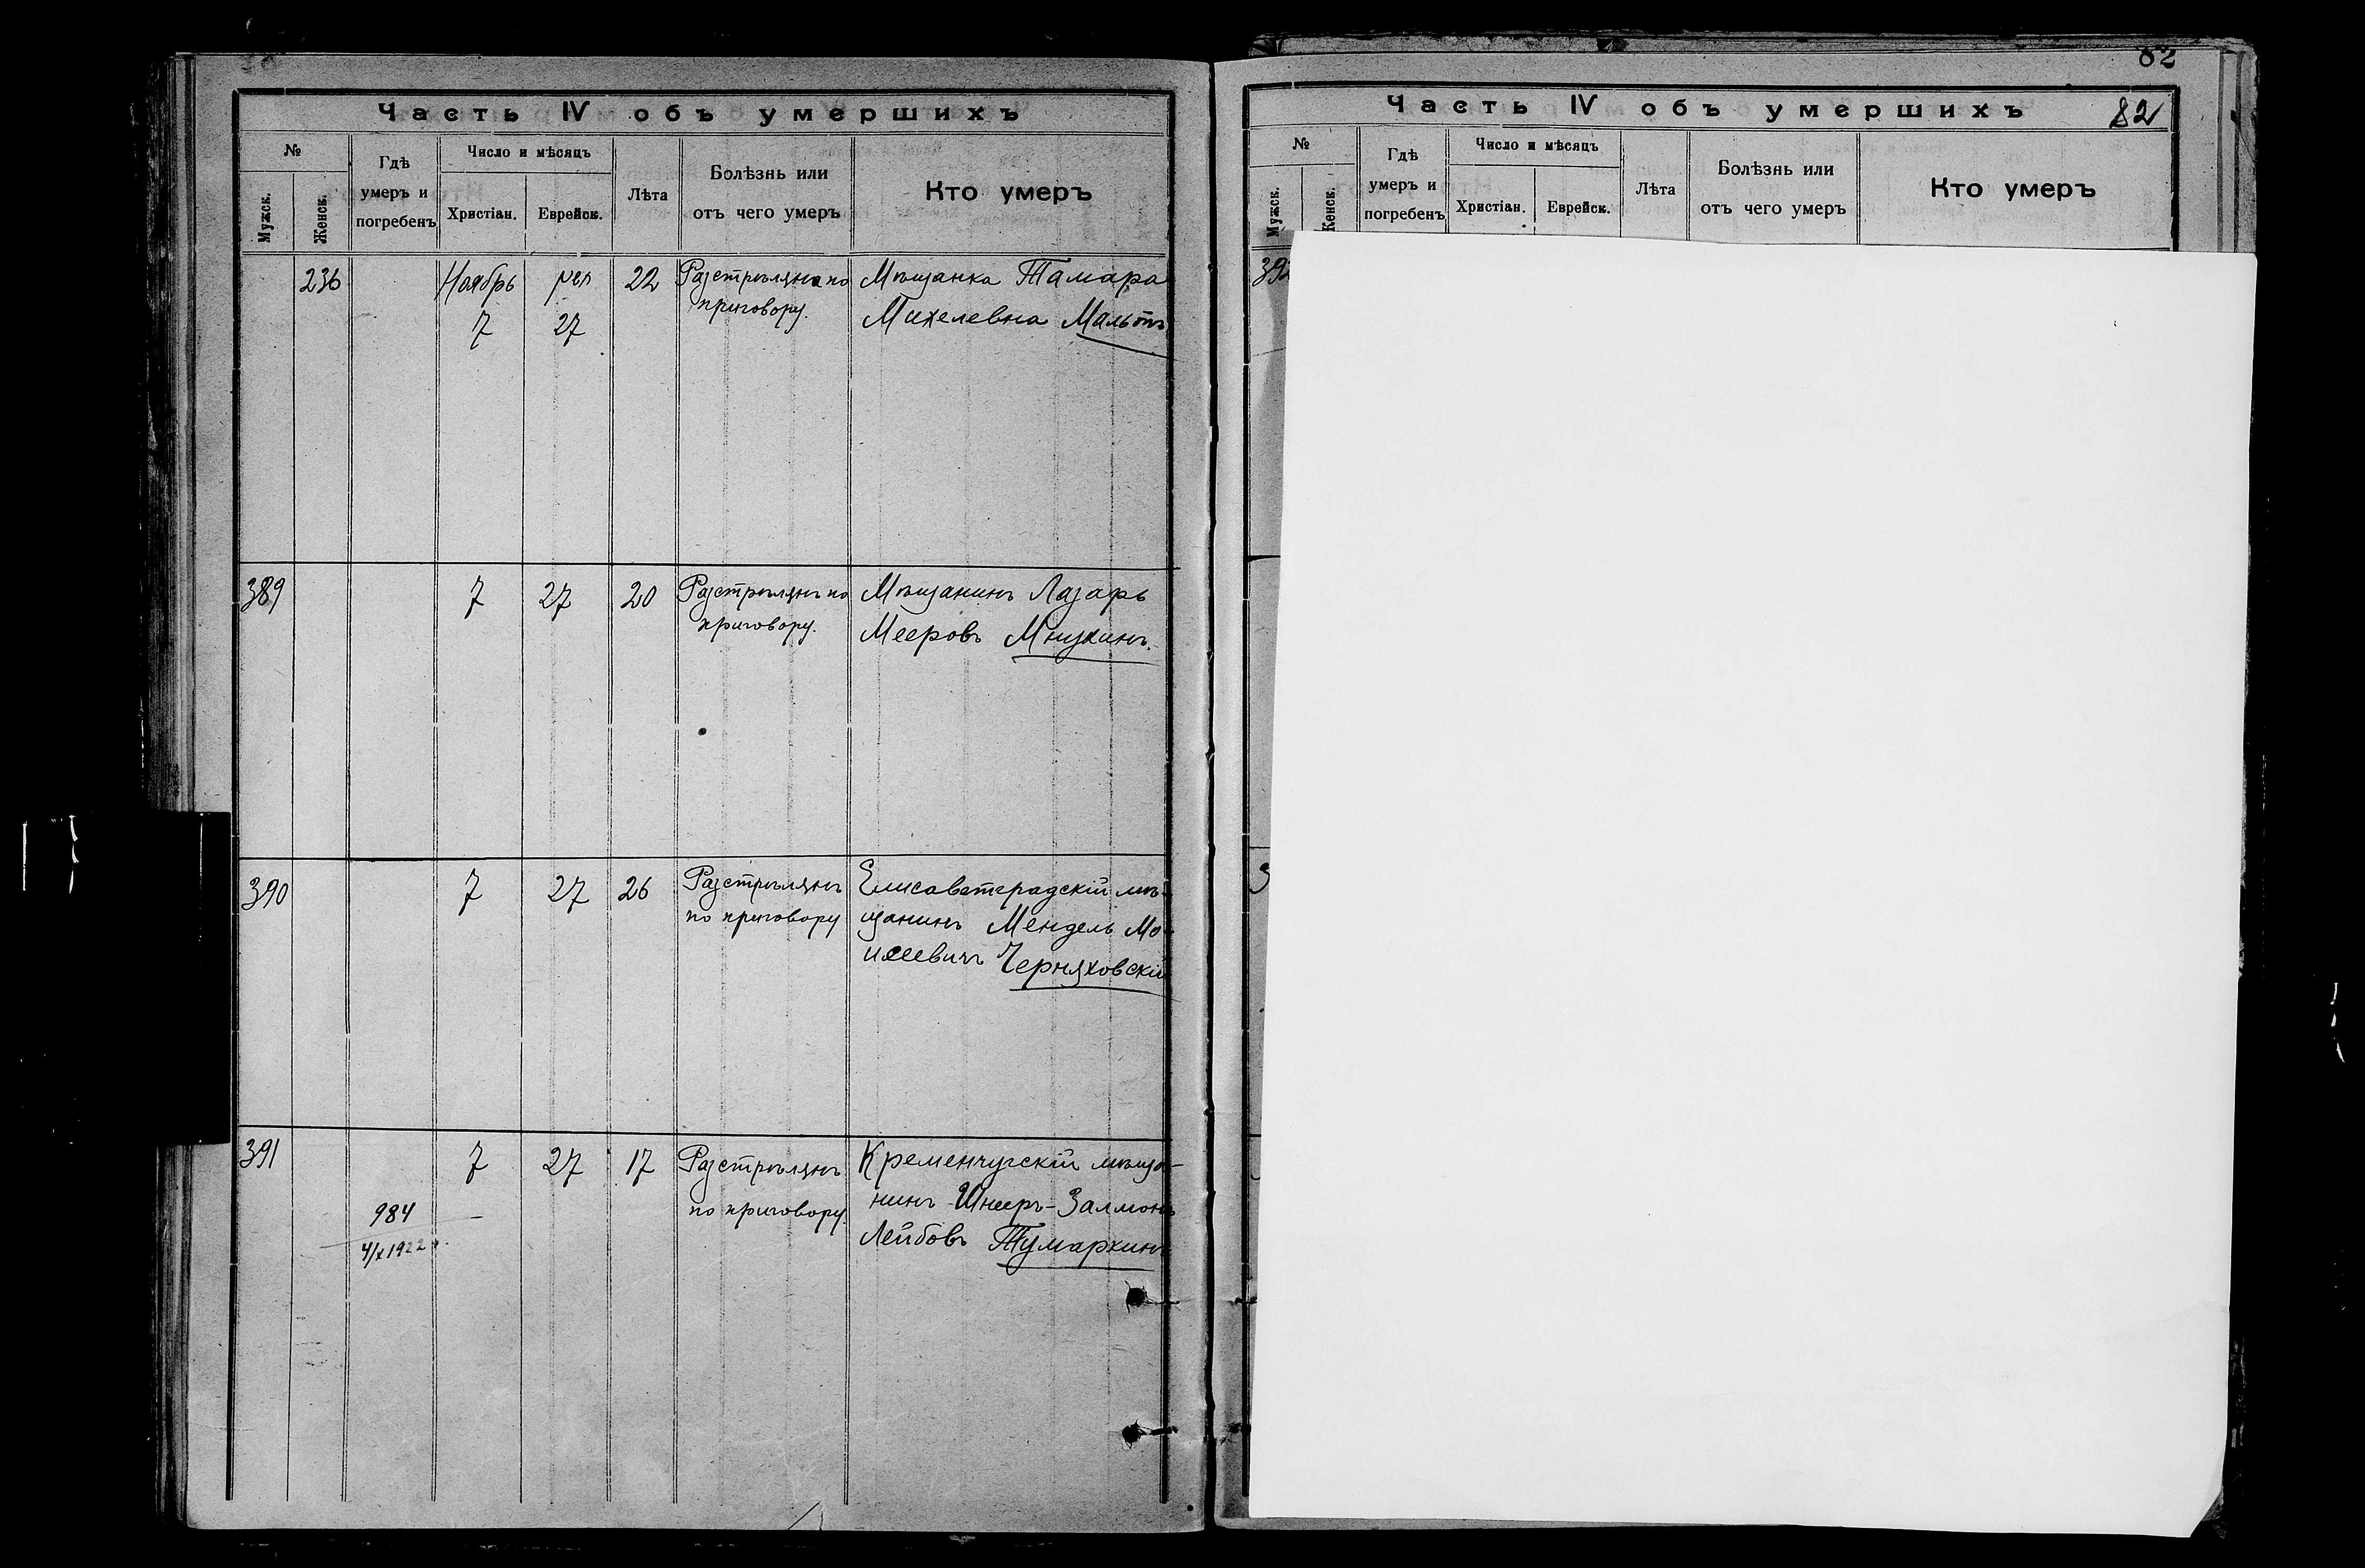 Часть IV объ умершихъ
№
Мужск.
Женск.
Гдѣ
умеръ и
погребенъ
Число и мѣсяцъ
Христіан.
Еврейск.
Лѣта
Болѣзнь или
отъ чего умеръ
Кто умеръ
236
Ноябрь
7
27
22
Разстрѣляна по
приговору.
Мѣщанка Тамара
Михелевна Мальтъ
389
7
27
20
Разстрѣлянъ по
приговору.
Мѣщанинъ Лазарь
Мееровъ Мнухинъ.
390
7
27
26
Разстрѣлянъ
по приговору
Елисаветградскій мѣ-
щанинъ Мендель Мо-
исеевичъ Черняховскій
391
984
4/X 1922 г.
7
27
17
Разстрѣлянъ
по приговору.
Кременчугскій мѣща-
нинъ Шнееръ-Залмонъ
Лейбовъ Тумаркинъ
82
Часть IV объ умершихъ
82
№
Мужск.
Женск.
Гдѣ
умеръ и
погребенъ
Число и мѣсяцъ
Христіан.
Еврейск.
Лѣта
Болѣзнь или
отъ чего умеръ
Кто умеръ
392